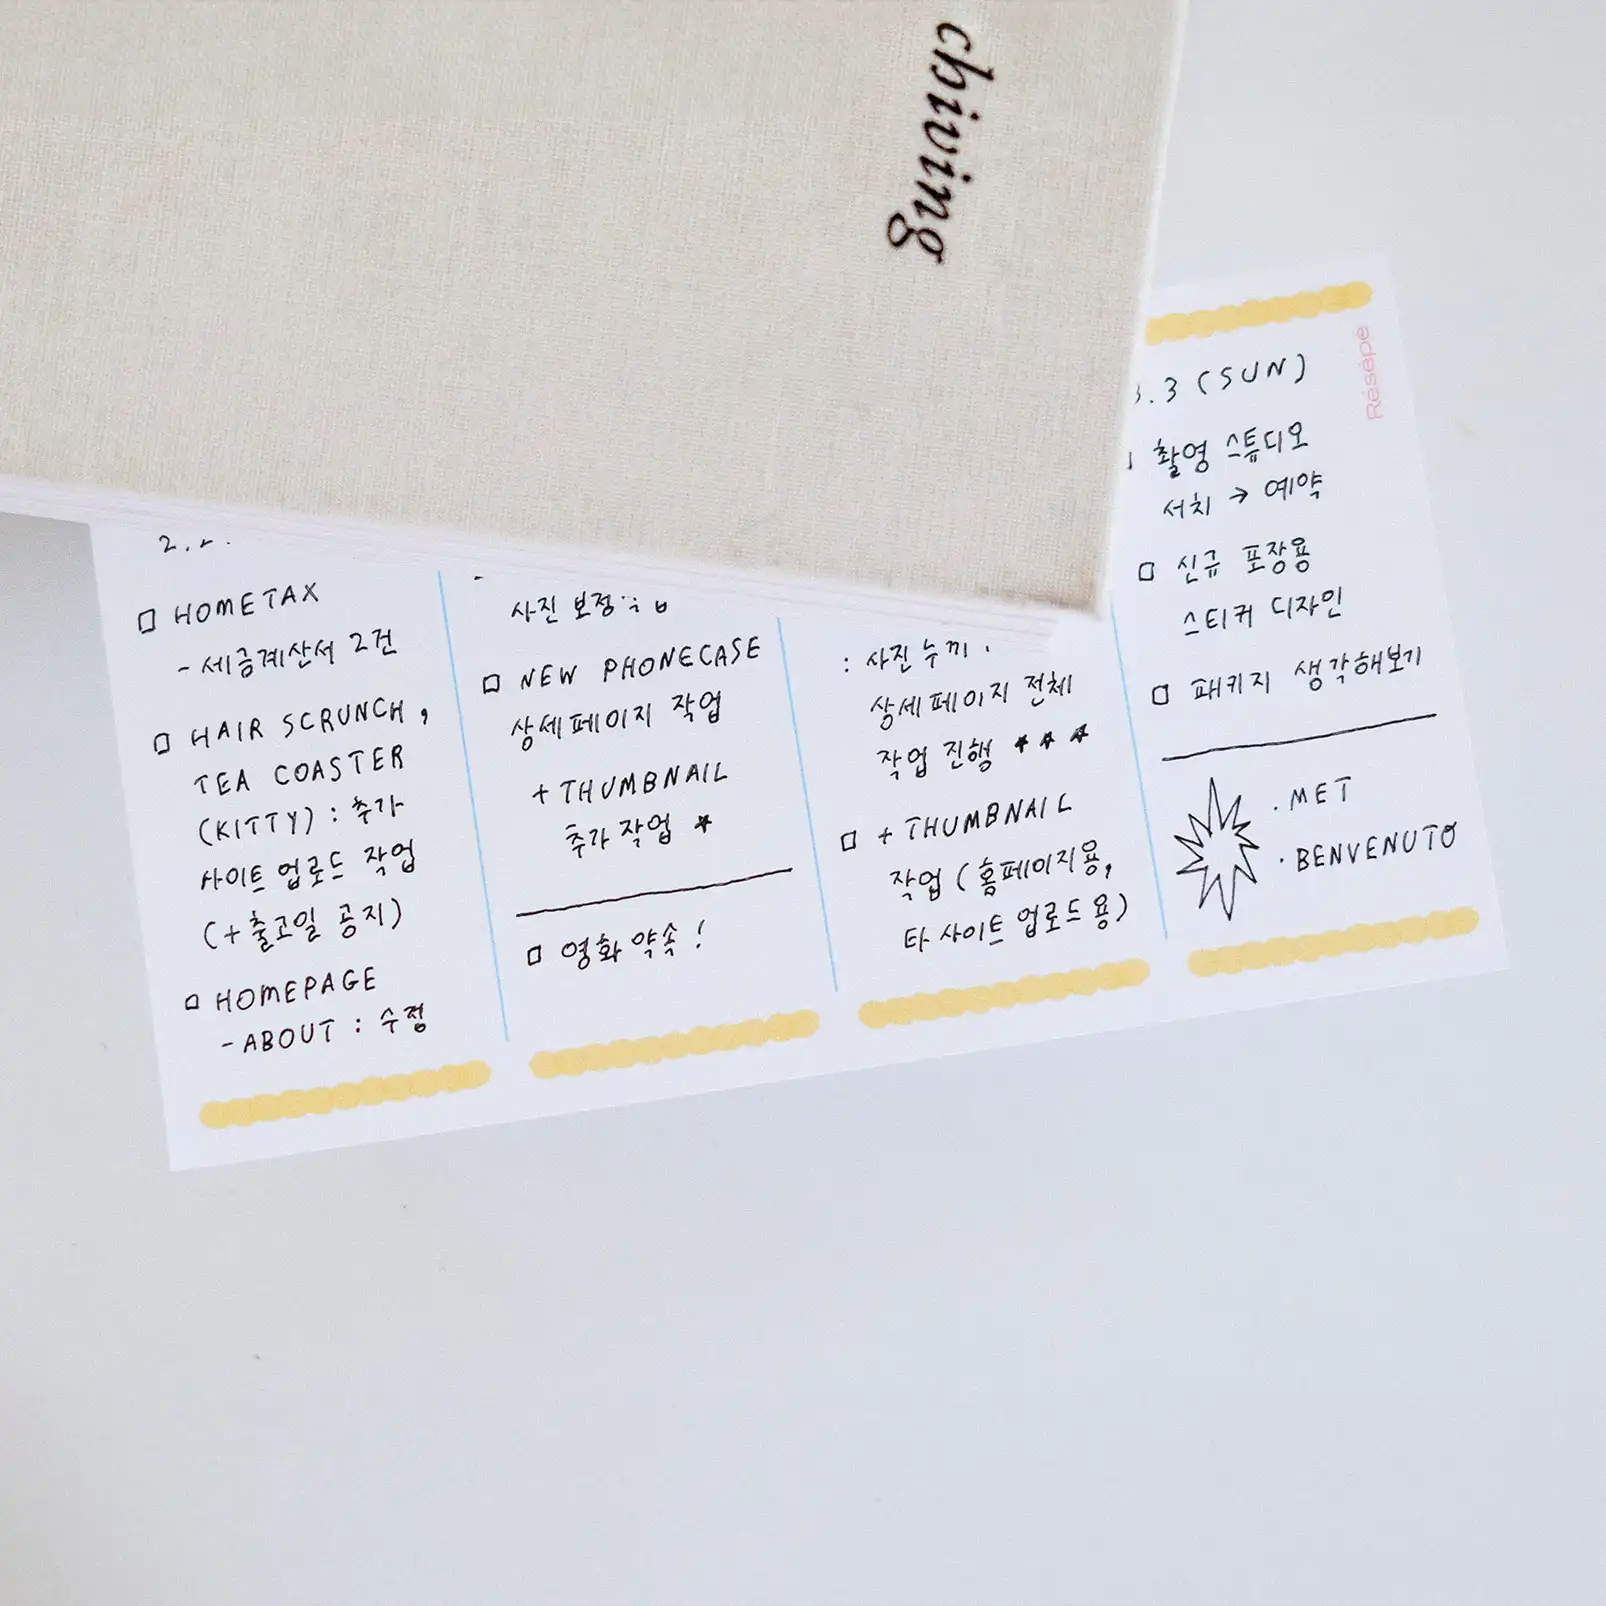 chiving
Résépe
2.2.
□ HOMETAX
- 세금계산서 2건
□ HAIR SCRUNCH,
TEA COASTER
(KITTY) : 추가
사이트 업로드 작업
(+출고일 공지)
□ HOMEPAGE
- ABOUT : 수정
사진 보정
□ NEW PHONECASE
상세페이지 작업
+ THUMBNAIL
추가 작업 ★
□ 영화 약속!
: 사진 누끼
상세페이지 전체
작업 진행 ★ ★ ★
□ + THUMBNAIL
작업 (홈페이지용,
타 사이트 업로드용)
3.3 (SUN)
촬영 스튜디오
서치 → 예약
□ 신규 포장용
스티커 디자인
□ 패키지 생각해보기
· MET
· BENVENUTO